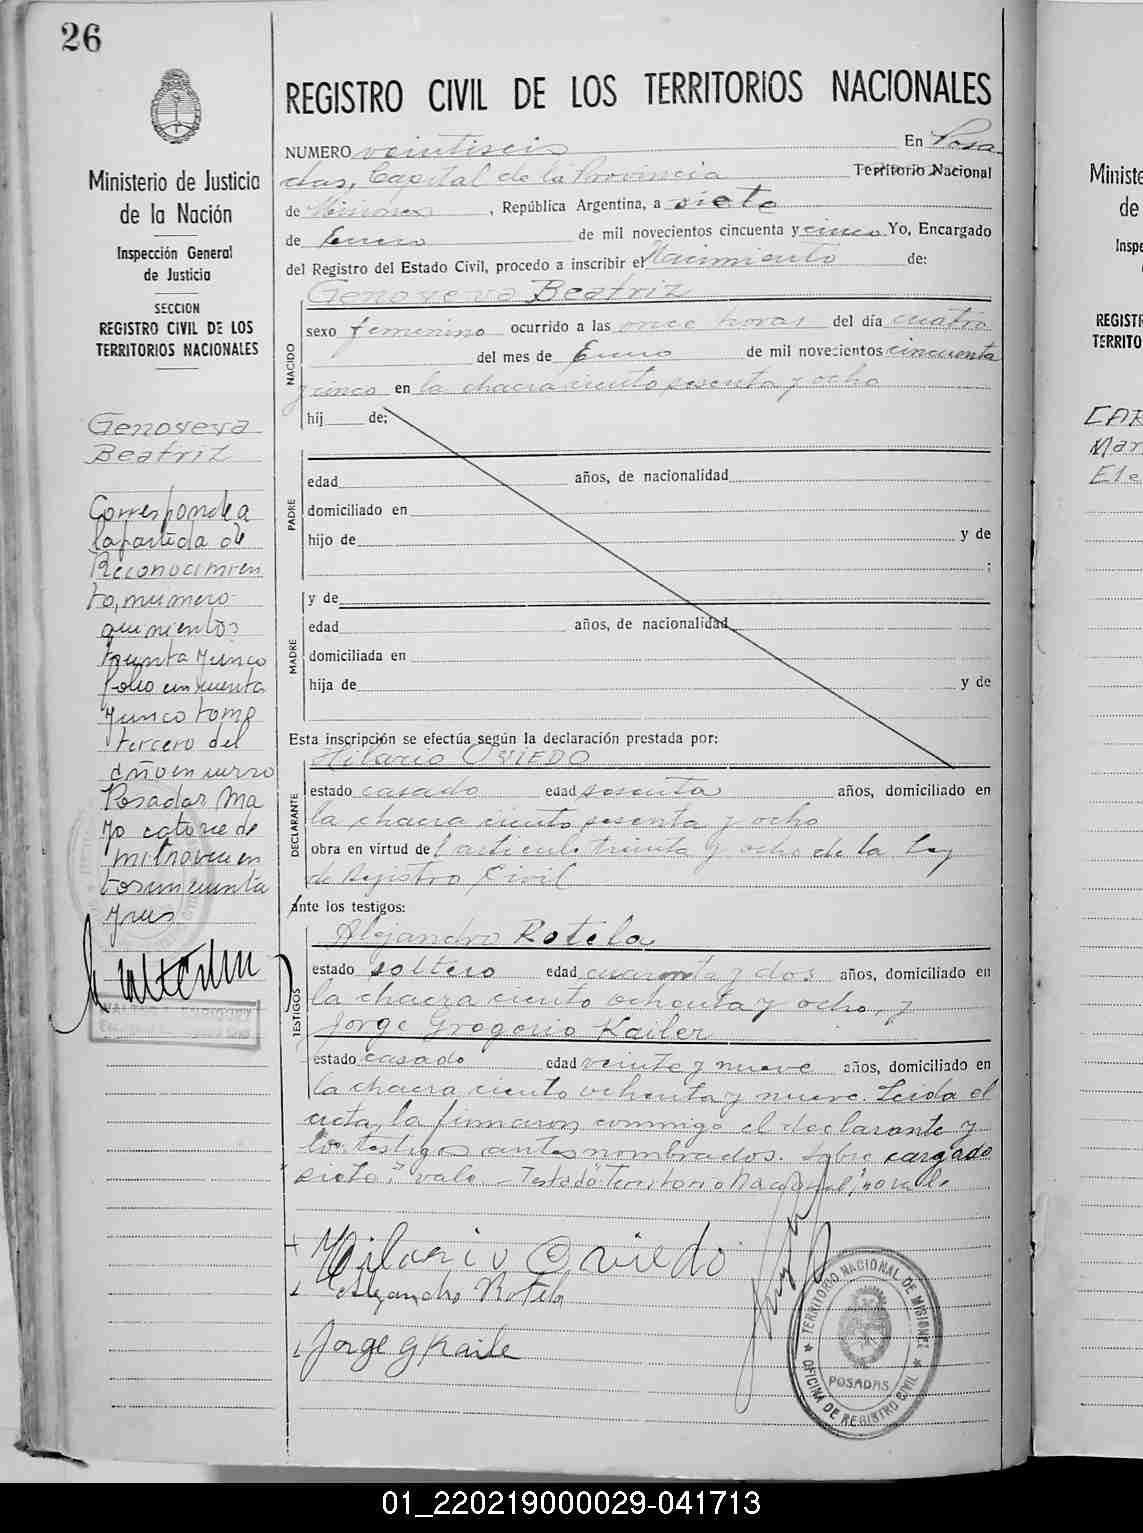 26
Ministerio de Justicia
de la Nación
Inspección General
de Justicia
SECCION
REGISTRO CIVIL DE LOS
TERRITORIOS NACIONALES
Genoveva
Beatriz
Corresponde a
la partida de
Reconocimien
to, numero
quinientos
treinta y cinco
folio cincuenta
y cinco tomo
tercero del
año en curso
Posadas, Ma
yo catorce de
mil novecien
tos cincuenta
y
REGISTRO CIVIL DE LOS TERRITORIOS NACIONALES
NUMERO veintiseis En Posa
das, Capital de la Provincia Territorio Nacional
de Misiones , República Argentina, a siete
de Enero de mil novecientos cincuenta y cinco Yo, Encargado
del Registro del Estado Civil, procedo a inscribir el Nacimiento de:
Genoveva Beatriz
NACIDO
sexo femenino ocurrido a las once horas del día cuatro
del mes de Enero de mil novecientos cincuenta
y cinco en la chacra ciento sesenta y ocho
hij de:
PADRE
edad años, de nacionalidad
domiciliado en
hijo de y de
;
MADRE
y de
edad años, de nacionalidad
domiciliada en
hija de y de
Esta inscripción se efectúa según la declaración prestada por:
Hilario OVIEDO
DECLARANTE
estado casado edad sesenta años, domiciliado en
la chacra ciento sesenta y ocho
obra en virtud del articulo treinta y ocho de la Ley
de Registro Civil
ante los testigos:
Alejandro Rotela
TESTIGOS
estado soltero edad cuarenta y dos años, domiciliado en
la chacra ciento ochenta y ocho, y
Jorge Gregorio Kailer
estado casado edad veinte y nueve años, domiciliado en
la chacra ciento ochenta y nueve. Leida el
acta, la firmaron conmigo el declarante y
los testigos antes nombrados. Sobre cargado
"siete," vale - Testado "Territorio Nacional," no vale
Hilario Oviedo
Alejandro Rotela
Jorge G Kaile
TERRITORIO NACIONAL DE MISIONES
POSADAS
OFICINA DE REGISTRO CIVIL
Ministe
de
Inspe
REGISTR
TERRITO
CAR
Mar
Ele
01_220219000029-041713